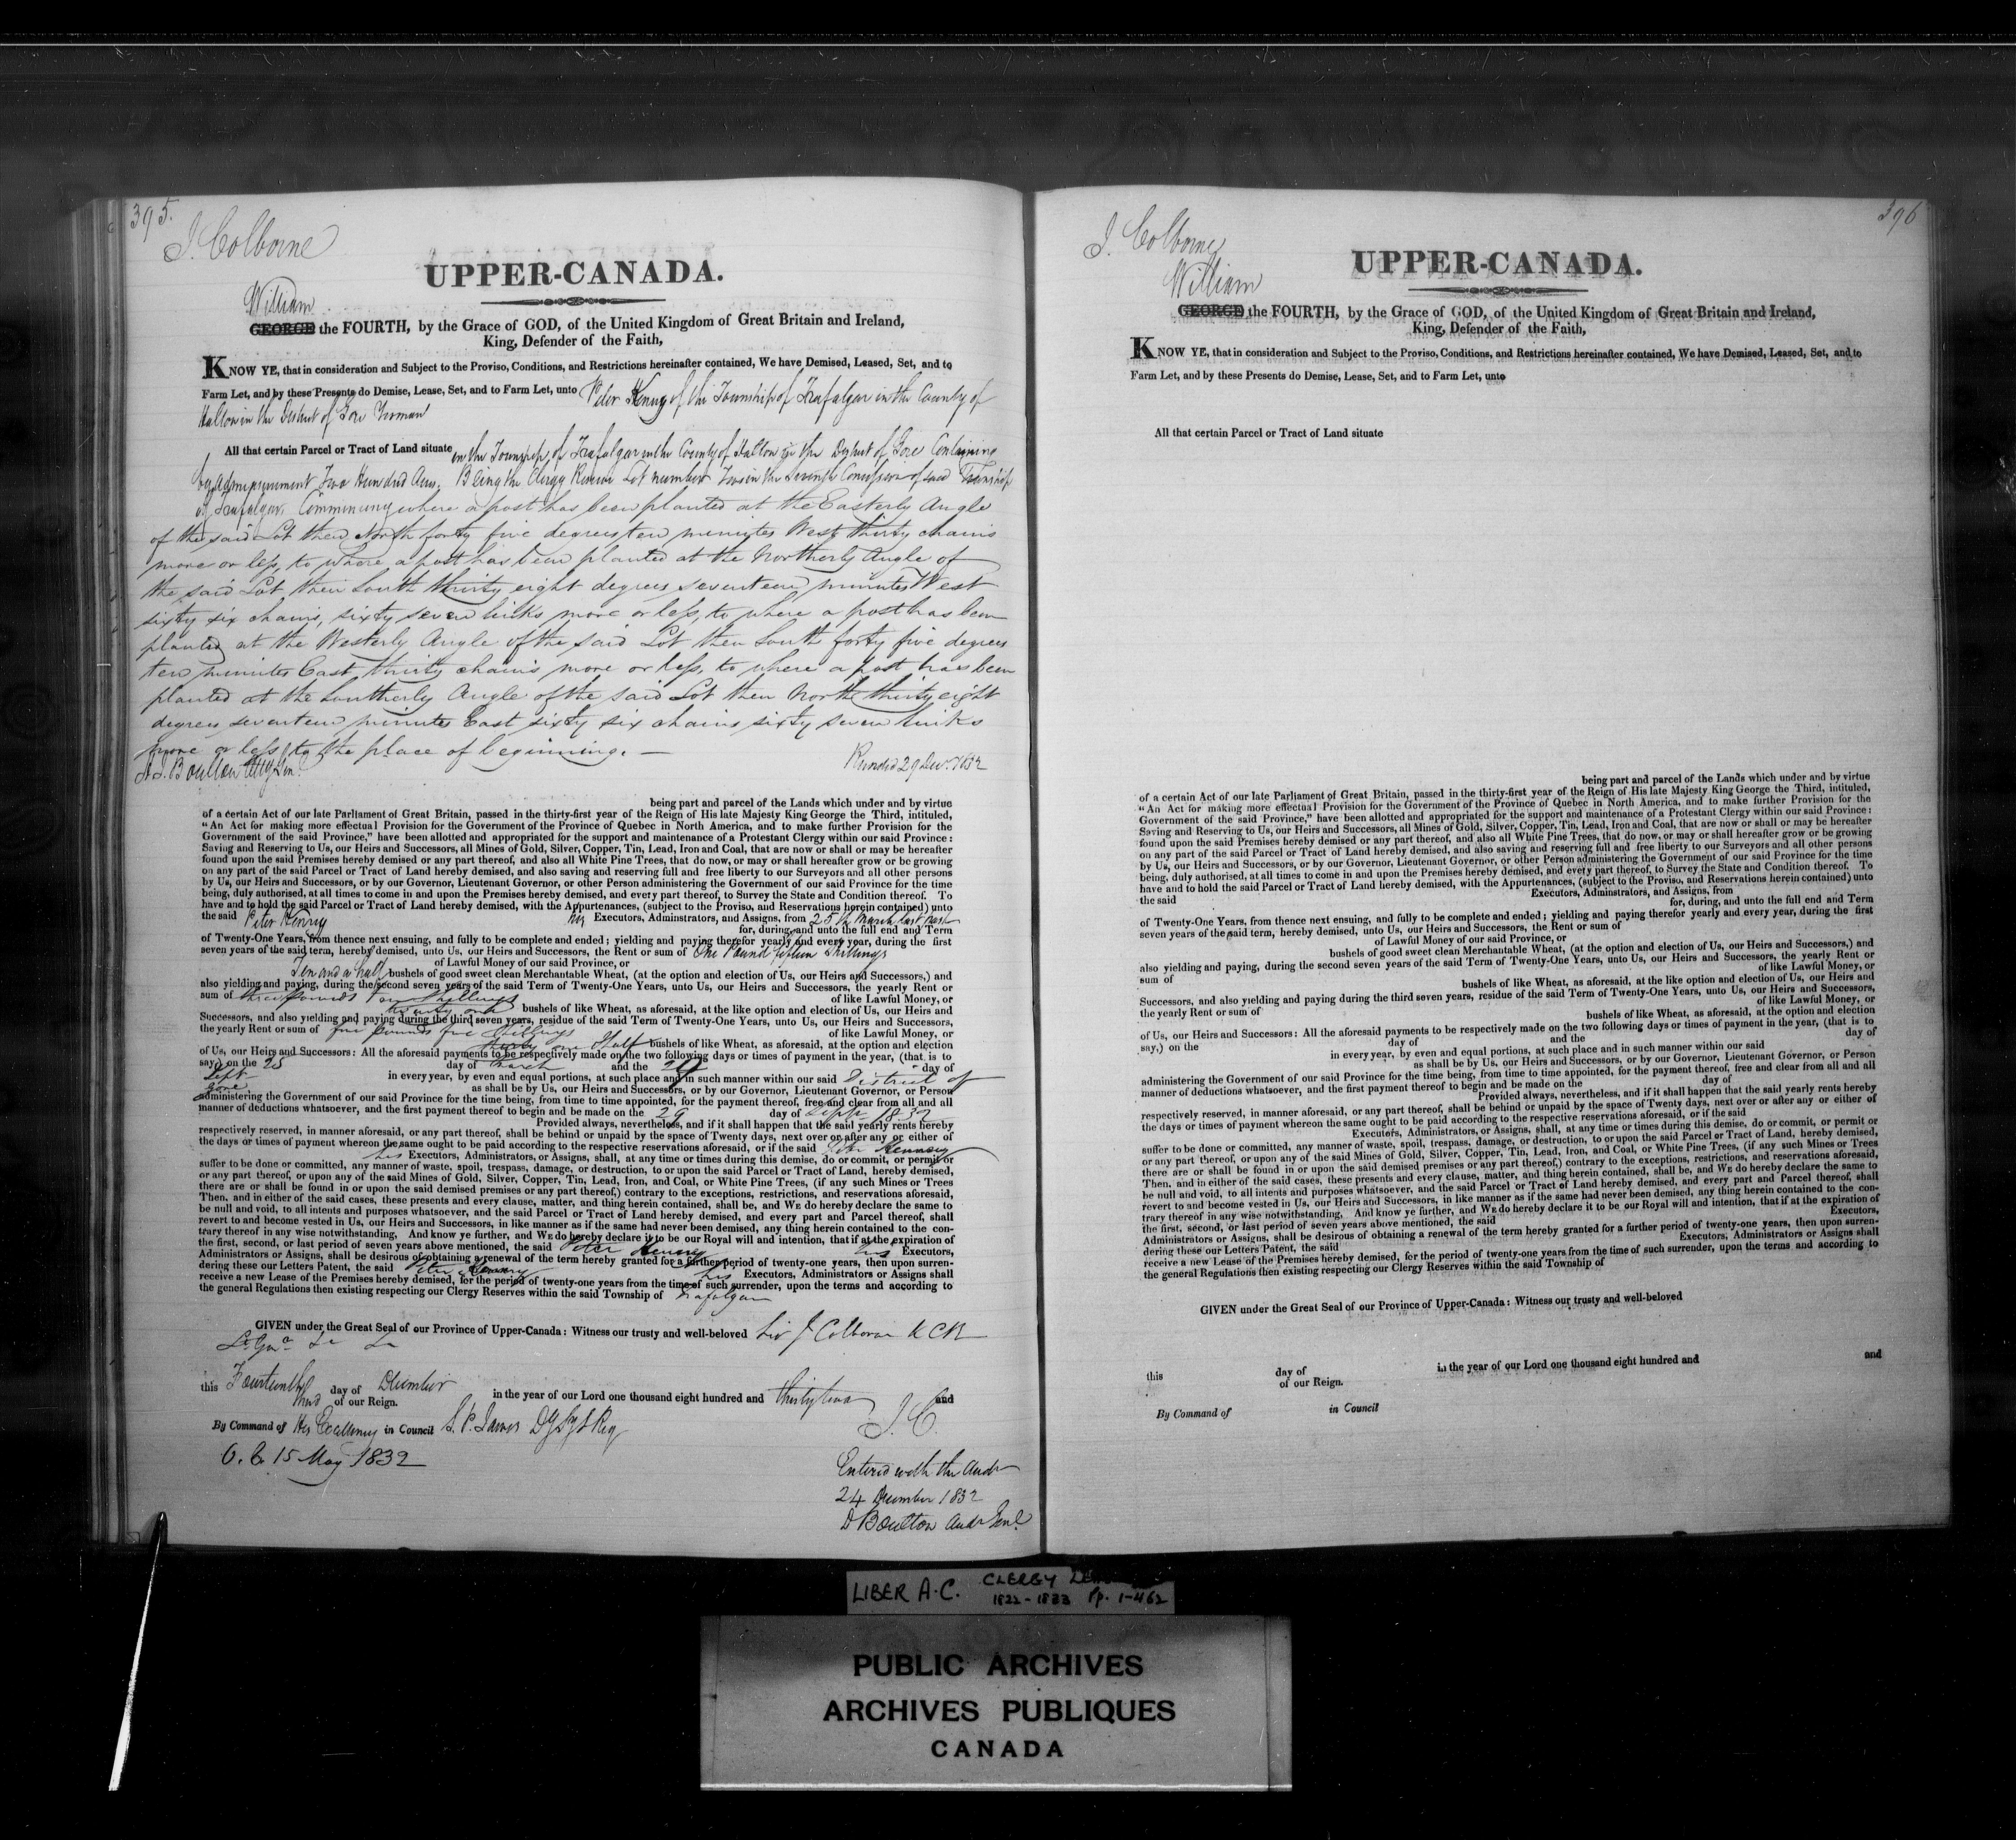 395.
J. Colborne
UPPER-CANADA.
William
GEORGE the FOURTH, by the Grace of GOD, of the United Kingdom of Great Britain and Ireland,
King, Defender of the Faith,
KNOW YE, that in consideration and Subject to the Proviso, Conditions, and Restrictions hereinafter contained, We have Demised, Leased, Set, and to
Farm Let, and by these Presents do Demise, Lease, Set, and to Farm Let, unto Peter Kenny of the Township of Trafalgar in the County of
Halton in the District of Gore Yeoman
All that certain Parcel or Tract of Land situate in the Township of Trafalgar in the County of Halton in the District of Gore Containing
by Admeasurement Two Hundred Acres. Being the Clergy Reserve Lot number Two in the Seventh Concession of said Township
of Trafalgar. Commencing where a post has been planted at the Easterly Angle
of the said Lot then North forty five degrees ten minutes West thirty chains
more or less, to where a post has been planted at the Northerly Angle of
the said Lot, then South thirty eight degrees seventeen minutes West
sixty six chains, sixty seven links more or less, to where a post has been
planted at the Westerly Angle of the said Lot then South forty five degrees
ten minutes East thirty chains more or less, to where a post has been
planted at the Southerly Angle of the said Lot then North thirty eight
degrees seventeen minutes East sixty six chains sixty seven links
more or less to the place of beginning. —
Boulton Atty Gen. Recorded 29 Decr. 1832
being part and parcel of the Lands which under and by virtue
of a certain Act of our late Parliament of Great Britain, passed in the thirty-first year of the Reign of His late Majesty King George the Third, intituled,
"An Act for making more effectual Provision for the Government of the Province of Quebec in North America, and to make further Provision for the
Government of the said Province," have been allotted and appropriated for the support and maintenance of a Protestant Clergy within our said Province:
Saving and Reserving to Us, our Heirs and Successors, all Mines of Gold, Silver, Copper, Tin, Lead, Iron and Coal, that are now or shall or may be hereafter
found upon the said Premises hereby demised or any part thereof, and also all White Pine Trees, that do now, or may or shall hereafter grow or be growing
on any part of the said Parcel or Tract of Land hereby demised, and also saving and reserving full and free liberty to our Surveyors and all other persons
by Us, our Heirs and Successors, or by our Governor, Lieutenant Governor, or other Person administering the Government of our said Province for the time
being, duly authorised, at all times to come in and upon the Premises hereby demised, and every part thereof, to Survey the State and Condition thereof. To
have and to hold the said Parcel or Tract of Land hereby demised, with the Appurtenances, (subject to the Proviso, and Reservations herein contained) unto
the said Peter Kenny his Executors, Adminstrators, and Assigns, from 25th March last past
for, during, and unto the full end and Term
of Twenty-One Years, from thence next ensuing, and fully to be complete and ended; yielding and paying therefor yearly and every year, during the first
seven years of the said term, hereby demised, unto Us, our Heirs and Successors, the Rent or sum of One Pound fifteen Shillings
of Lawful Money of our said Province, or
Ten and a half bushels of good sweet clean Merchantable Wheat, (at the option and election of Us, our Heirs and Successors,) and
also yielding and paying, during the second seven years of the said Term of Twenty-One Years, unto Us, our Heirs and Successors, the yearly Rent or
sum of three pounds ten shillings of like Lawful Money, or
twenty one bushels of like Wheat, as aforesaid, at the like option and election of Us, our Heirs and
Successors, and also yielding and paying during the third seven years, residue of the said Term of Twenty-One Years, unto Us, our Heirs and Successors,
the yearly Rent or sum of five pounds five shillings of like Lawful Money, or
thirty one & half bushels of like Wheat, as aforesaid, at the option and election
of Us, our Heirs and Successors: All the aforesaid payments to be respectively made on the two following days or times of payment in the year, (that is to
say,) on the 25 day of March and the 29 day of
Sept in every year, by even and equal portions, at such place and in such manner within our said District of
Gore as shall be by Us, our Heirs and Successors, or by our Governor, Lieutenant Governor, or Person
administering the Government of our said Province for the time being, from time to time appointed, for the payment thereof, free and clear from all and all
manner of deductions whatsoever, and the first payment thereof to begin and be made on the 29 day of Sept 1832
Provided always, nevertheless, and if it shall happen that the said yearly rents hereby
respectively reserved, in manner aforesaid, or any part thereof, shall be behind or unpaid by the space of Twenty days, next over or after any or either of
the days or times of payment whereon the same ought to be paid according to the respective reservations aforesaid, or if the said Peter Kenny
his Executors, Administrators, or Assigns, shall, at any time or times during this demise, do or commit, or permit or
suffer to be done or committed, any manner of waste, spoil, trespass, damage, or destruction, to or upon the said Parcel or Tract of Land, hereby demised,
or any part thereof, or upon any of the said Mines of Gold, Silver, Copper, Tin, Lead, Iron, and Coal, or White Pine Trees, (if any such Mines or Trees
there are or shall be found in or upon the said demised premises or any part thereof,) contrary to the exceptions, restrictions, and reservations aforesaid,
Then, and in either of the said cases, these presents and every clause, matter, and thing herein contained, shall be, and WE do hereby declare the same to
be null and void, to all intents and purposes whatsoever, and the said Parcel or Tract of Land hereby demised, and every part and Parcel thereof, shall
revert to and become vested in Us, our Heirs and Successors, in like manner as if the same had never been demised, any thing herein contained to the con-
trary thereof in any wise notwithstanding, And know ye further, and WE do hereby declare it to be our Royal will and intention, that if at the expiration of
the first, second, or last period of seven years above mentioned, the said Peter Kenny his Executors,
Administrators or Assigns, shall be desirous of obtaining a renewal of the term hereby granted for a further period of twenty-one years, then upon surren-
dering these our Letters Patent, the said Peter Kenny his Executors, Administrators or Assigns shall
receive a new Lease of the Premises hereby demised, for the period of twenty-one years from the time of such surrender, upon the terms and according to
the general Regulations then existing respecting our Clergy Reserves within the said Township of Trafalgar
GIVEN under the Great Seal of our Province of Upper-Canada: Witness our trusty and well-beloved Sir J Colborne K C B
this Fourteenth day of December in the year of our Lord one thousand eight hundred and thirty two and
third of our Reign. J. C.
By Command of His Excellency in Council S. P. Jarvis
O. C. 15 May 1832
Entered with the Audr
24 December 1832
Boulton Audr Genl.
396
J. Colborne
UPPER-CANADA.
William
GEORGE the FOURTH, by the Grace of GOD, of the United Kingdom of Great Britain and Ireland,
King, Defender of the Faith,
KNOW YE, that in consideration and Subject to the Proviso, Conditions, and Restrictions hereinafter contained, We have Demised, Leased, Set, and to
Farm Let, and by these Presents do Demise, Lease, Set, and to Farm Let, unto
All that certain Parcel or Tract of Land situate
being part and parcel of the Lands which under and by virtue
of a certain Act of our late Parliament of Great Britain, passed in the thirty-first year of the Reign of His late Majesty King George the Third, intituled,
"An Act for making more effectual Provision for the Government of the Province of Quebec in North America, and to make further Provision for the
Government of the said Province," have been allotted and appropriated for the support and maintenance of a Protestant Clergy within our said Province:
Saving and Reserving to Us, our Heirs and Successors, all Mines of Gold, Silver, Copper, Tin, Lead, Iron and Coal, that are now or shall or may be hereafter
found upon the said Premises hereby demised or any part thereof, and also all White Pine Trees, that do now, or may or shall hereafter grow or be growing
on any part of the said Parcel or Tract of Land hereby demised, and also saving and reserving full and free liberty to our Surveyors and all other persons
by Us, our Heirs and Successors, or by our Governor, Lieutenant Governor, or other Person administering the Government of our said Province for the time
being, duly authorised, at all times to come in and upon the Premises hereby demised, and every part thereof, to Survey the State and Condition thereof. To
have and to hold the said Parcel or Tract of Land hereby demised, with the Appurtenances, (subject to the Proviso, and Reservations herein contained) unto
the said Executors, Adminstrators, and Assigns, from
for, during, and unto the full end and Term
of Twenty-One Years, from thence next ensuing, and fully to be complete and ended; yielding and paying therefor yearly and every year, during the first
seven years of the said term, hereby demised, unto Us, our Heirs and Successors, the Rent or sum of
of Lawful Money of our said Province, or
bushels of good sweet clean Merchantable Wheat, (at the option and election of Us, our Heirs and Successors,) and
also yielding and paying, during the second seven years of the said Term of Twenty-One Years, unto Us, our Heirs and Successors, the yearly Rent or
sum of of like Lawful Money, or
bushels of like Wheat, as aforesaid, at the like option and election of Us, our Heirs and
Successors, and also yielding and paying during the third seven years, residue of the said Term of Twenty-One Years, unto Us, our Heirs and Successors,
the yearly Rent or sum of of like Lawful Money, or
bushels of like Wheat, as aforesaid, at the option and election
of Us, our Heirs and Successors: All the aforesaid payments to be respectively made on the two following days or times of payment in the year, (that is to
say,) on the day of and the day of
in every year, by even and equal portions, at such place and in such manner within our said
as shall be by Us, our Heirs and Successors, or by our Governor, Lieutenant Governor, or Person
administering the Government of our said Province for the time being, from time to time appointed, for the payment thereof, free and clear from all and all
manner of deductions whatsoever, and the first payment thereof to begin and be made on the day of
Provided always, nevertheless, and if it shall happen that the said yearly rents hereby
respectively reserved, in manner aforesaid, or any part thereof, shall be behind or unpaid by the space of Twenty days, next over or after any or either of
the days or times of payment whereon the same ought to be paid according to the respective reservations aforesaid, or if the said
Executors, Administrators, or Assigns, shall, at any time or times during this demise, do or commit, or permit or
suffer to be done or committed, any manner of waste, spoil, trespass, damage, or destruction, to or upon the said Parcel or Tract of Land, hereby demised,
or any part thereof, or upon any of the said Mines of Gold, Silver, Copper, Tin, Lead, Iron, and Coal, or White Pine Trees, (if any such Mines or Trees
there are or shall be found in or upon the said demised premises or any part thereof,) contrary to the exceptions, restrictions, and reservations aforesaid,
Then, and in either of the said cases, these presents and every clause, matter, and thing herein contained, shall be, and WE do hereby declare the same to
be null and void, to all intents and purposes whatsoever, and the said Parcel or Tract of Land hereby demised, and every part and Parcel thereof, shall
revert to and become vested in Us, our Heirs and Successors, in like manner as if the same had never been demised, any thing herein contained to the con-
trary thereof in any wise notwithstanding, And know ye further, and WE do hereby declare it to be our Royal will and intention, that if at the expiration of
the first, second, or last period of seven years above mentioned, the said Executors,
Administrators or Assigns, shall be desirous of obtaining a renewal of the term hereby granted for a further period of twenty-one years, then upon surren-
dering these our Letters Patent, the said Executors, Administrators or Assigns shall
receive a new Lease of the Premises hereby demised, for the period of twenty-one years from the time of such surrender, upon the terms and according to
the general Regulations then existing respecting our Clergy Reserves within the said Township of
GIVEN under the Great Seal of our Province of Upper-Canada: Witness our trusty and well-beloved
this day of in the year of our Lord one thousand eight hundred and and
of our Reign.
By Command of in Council
LIBER A.C. CLERGY
1822-1833 Pp. 1-462
PUBLIC ARCHIVES
ARCHIVES PUBLIQUES
CANADA